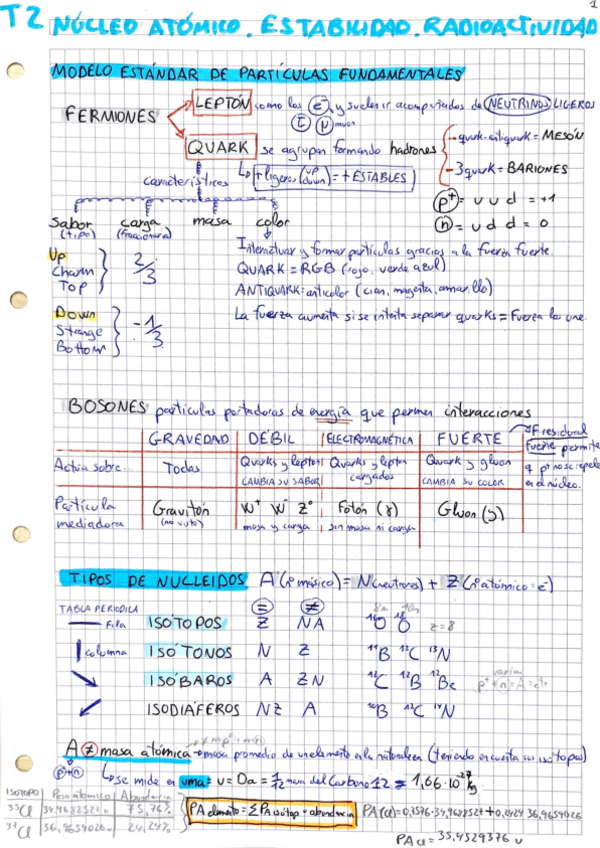 1
T2 NÚCLEO ATÓMICO. ESTABILIDAD. RADIOACTIVIDAD
MODELO ESTÁNDAR DE PARTÍCULAS FUNDAMENTALES
FERMIONES
LEPTÓN como los e⁻ y suelen ir acompañados de NEUTRINOS LIGEROS
τ μ muon
QUARK se agrupan formando hadrones
quark-antiquark = MESÓN
3quark = BARIONES
+ ligeros (up down) = + ESTABLES
p⁺ = u u d = +1
n = u d d = 0
características
Sabor (tipo) carga (fraccionaria) masa color
Up
Charm
Top
2/3
Down
Strange
Bottom
-1/3
Interactuar y formar partículas gracias a la fuerza fuerte.
QUARK = RGB (rojo, verde azul)
ANTIQUARK = anticolor (cian, magenta, amarillo)
La fuerza aumenta si se intenta separar quarks = Fuerza los une.
BOSONES partículas portadoras de energía que permen interacciones
GRAVEDAD DÉBIL ELECTROMAGNÉTICA FUERTE
F residual fuerte permite q p⁺ no se repelen en el núcleo.
Actua sobre... Todas Quarks y lepton CAMBIA SU SABOR Quarks y lepton cargados Quark y gluon CAMBIA SU COLOR
Partícula mediadora Gravitón (no visto) W⁺ W⁻ Z⁰ masa y carga Fotón (γ) sin masa ni carga Gluon (g)
TIPOS DE NUCLEIDOS A (nº másico) = N (neutrones) + Z (nº atómico = e⁻)
TABLA PERIODICA = ≠
Fila ISÓTOPOS Z NA ¹⁶O ¹⁸O Z=8
columna ISÓTONOS N Z ¹¹B ¹²C ¹³N
ISÓBAROS A ZN ¹²C ¹²B ¹²Be
ISODIÁFEROS NZ A ¹⁰B ¹²C ¹⁴N
A ≠ masa atómica → masa promedio de un elemento en la naturaleza (teniendo en cuenta sus isótopos)
p⁺+n
se mide en uma = u = Da = 1/12 masa del Carbono 12 = 1,66·10⁻²⁷ kg
ISOTOPO Peso atómico Abundancia
³⁵Cl 34,968852u 75,76%
³⁷Cl 36,965902u 24,24%
PA elemento = Σ PA isótop · abundancia
PA(Cl) = 0,7576·34,968852 + 0,2424·36,965902
PA Cl = 35,4529376 u